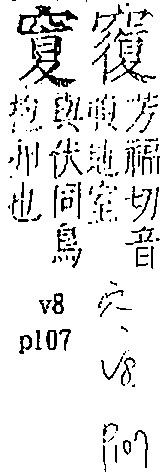 芳福切音
地室
與伏同鳥
抱卵也
v8
p107
穴、V8
P107